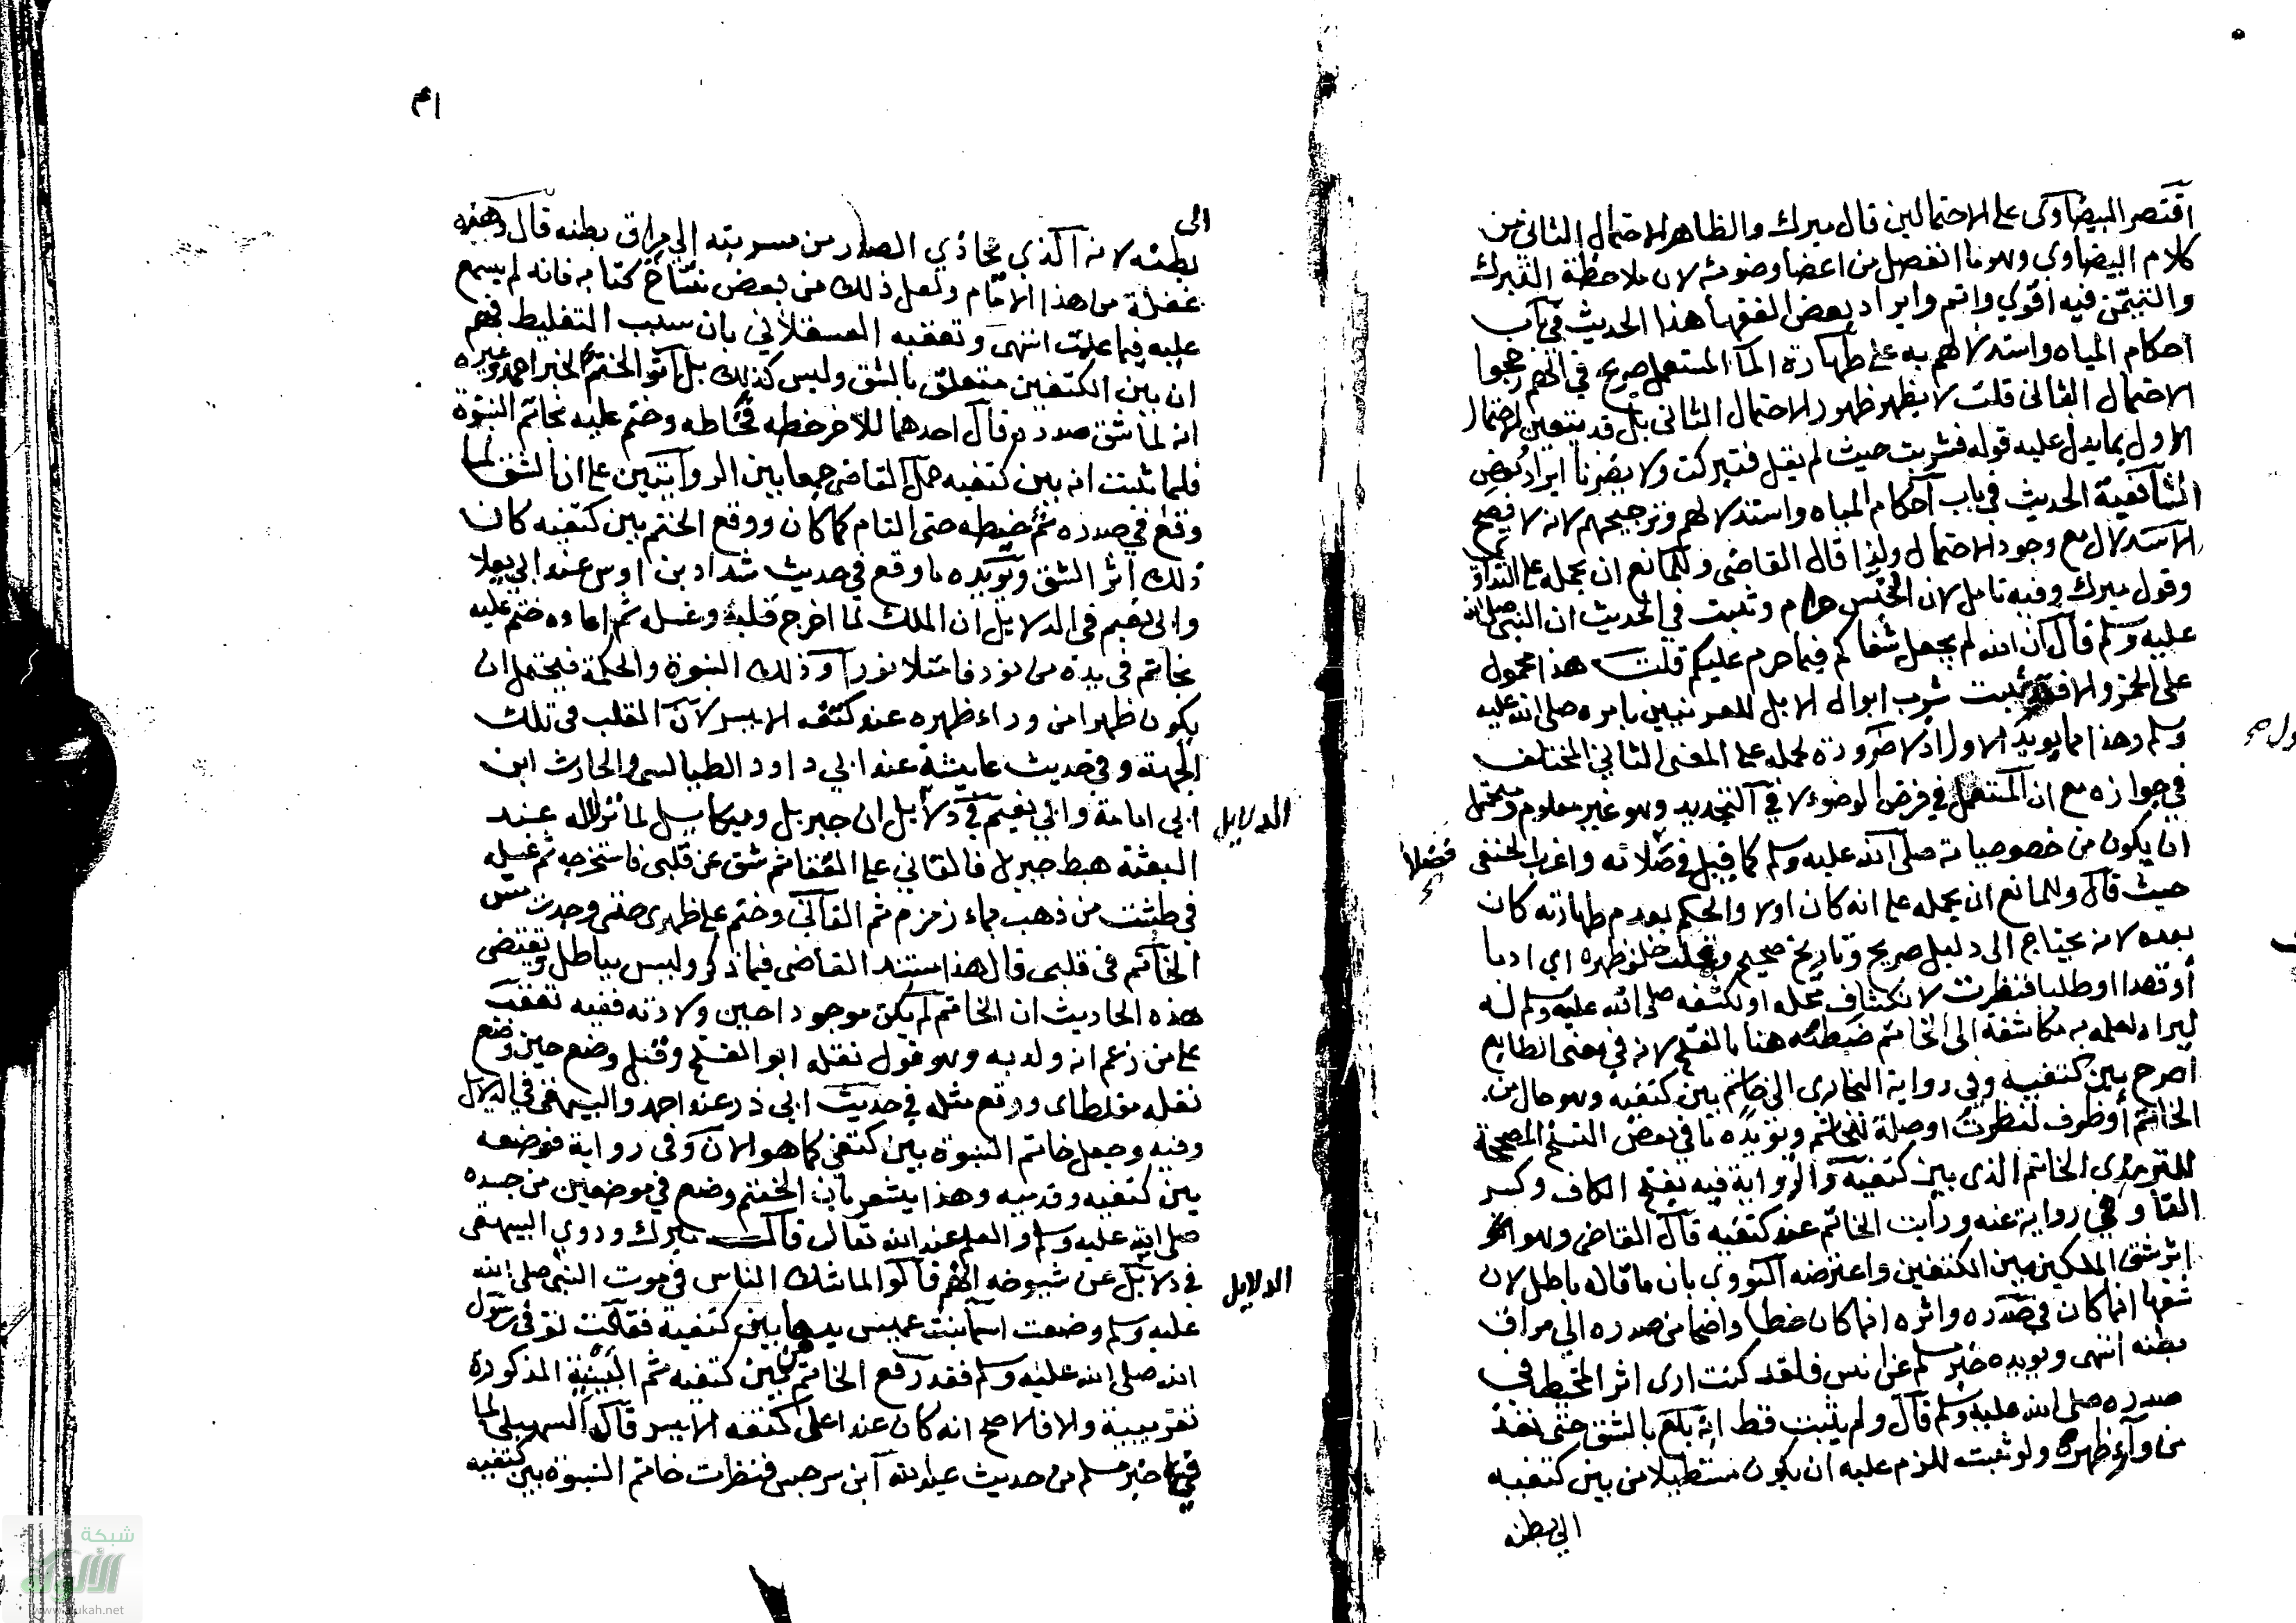 اقتصر البيضاوى على الاحتمالين قال ميرك والظاهر الاحتمال الثانى من
كلام البيضاوي وهو ما انفصل من اعضا وضوئه لان ملاحظة التبرك
والتيمن فيه اقوي واتم وايراد بعض الفقها هذا الحديث في باب
احكام المياه واستدلالهم به على طهارة الما المستعمل صريح في انهم رجحوا
الاحتمال الثانى قلت لا يظهر ظهور الاحتمال الثانى بل قد يتعين الاحتمال
الاول بما يدل عليه قوله فشربت حيث لم يقل فتبركت ولا يضرنا ايراد بعض
الشافعية الحديث في باب احكام المياه واستدلالهم وترجيحهم لانه لا يصح
الاستدلال مع وجود الاحتمال ولذا قال القاضى وللمانع ان يحمله على التداوي
وقول ميرك وفيه تامل لان النجس حرام وثبت في الحديث ان النبى صلى الله
عليه وسلم قال ان الله لم يجعل شفاكم فيما حرم عليكم قلت هذا محمول
على الخمر والا فقد ثبت شرب ابوال الابل للعرنيين بامره صلى الله عليه
وسلم وهذا مما يويد الاول اذ لا ضرورة لحمله على المعنى الثاني المختلف
في جوازه مع ان المستعمل في فرض الوضوء لا في التجديد وهو غير معلوم ويحتمل
ان يكون من خصوصياته صلى الله عليه وسلم كما قيل في فضلاته واغرب الحنفى
فضلا
حيث قال وللمانع ان يحمله على انه كان اولا والحكم بعدم طهارته كان
بعده لانه يحتاج الى دليل صريح وتاريخ صحيح وقمت خلف ظهره اي ادبا
أو قصدا او طلبا فنظرت لانكشاف محله او لكشفه صلى الله عليه وسلم له
ليراه لعلمه به مكاشفة الى الخاتم ضبطته هنا بالفتح لانه في معنى الطابع
اصرح بين كتفيه وفي رواية البخارى الى خاتم بين كتفيه وهو حال من
الخاتم أو ظرف لنظرت او صلة للخاتم ويويده ما في بعض النسخ المصححة
للترمذى الخاتم الذى بين كتفيه والرواية فيه بفتح الكاف وكسر
التا وفي رواية عنه ورأيت الخاتم عند كتفيه قال القاضى وهو
اثر شق الملكين بين الكتفين واعترضه النووي بان ما قاله باطل لان
شقهما انما كان في صدره واثره انما كان خطا واضحا من صدره الي مراق
بطنه انتهى ويويده خبر مسلم عن انس فلقد كنت ارى اثر المخيط في
صدره صلى الله عليه وسلم قال ولم يثبت قط انه بلغ بالشق حتى نفذ
من وراء ظهره ولو ثبت للزم عليه ان يكون مستطيلا من بين كتفيه
الي بطنه
الى
بطنه لانه الذي يحاذي الصدر من مسربته إلي مراق بطنه قال وهذه
غفلة من هذا الامام ولعل ذلك من بعض نساخ كتابه فانه لم يسمع
عليه فيما علمت انتهى وتعقبه العسقلاني بان سبب التغليط فهم
ان بين الكتفين متعلق بالشق وليس كذلك بل اثر الختم لخبر احمد وغيره
انه لما شق صدره قال احدهما للاخر خطه فخاطه وختم عليه بخاتم النبوة
فلما ثبت انه بين كتفيه حمل القاضى جمعا بين الروايتين على ان الشق لما
وقع في صدره ثم خيط حتى التام كما كان ووقع الختم بين كتفيه كان
ذلك اثر الشق ويويده ما وقع في حديث شداد بن اوس عند ابي يعلا
وابى نعيم في الدلايل ان الملك لما اخرج قلبه وغسله ثم اعاده ختم عليه
بخاتم في يده من نور فامتلا نورا وذلك النبوة والحكمة فيحتمل ان
يكون ظهر من وراء ظهره عند كتفه الايسر لان القلب فى تلك
الجهة وفي حديث عايشة عند ابي داود الطيالسى والحارث ابن
ابي امامة وابي نعيم في دلايل ان جبريل وميكاييل لما تراآله عند
الدلايل
البعثة هبط جبريل فالقاني على القفا ثم شق عن قلبى فاستخرجه ثم غسله
في طشت من ذهب بماء زمزم ثم القاني وختم على ظهري حتى وجدت مس
الخاتم فى قلبى قال هذا مستند القاضى فيما ذكر وليس بباطل وتقتضى
هذه الحاديث ان الخاتم لم يكن موجودا حين ولادته ففيه تعقب
على من زعم انه ولد به وهو قول نقله ابو الفتح وقيل وضع حين وضع
نقله مغلطاى ووقع مثله في حديث ابي ذر عند احمد والبيهقى في الدلايل
وفيه وجعل خاتم النبوة بين كتفى كما هو الان وفى رواية فوضعه
بين كتفيه وقدميه وهذا يشعر بان الختم وضع في موضعين من جسده
صلى الله عليه وسلم والعلم عند الله تعالى قال ميرك وروي البيهقى
في دلايل عن شيوخه انهم قالوا لما شك الناس في موت النبى صلى الله
الدلايل
عليه وسلم وضعت اسما بنت عميس يدها بين كتفيه فقالت توفي رسول
الله صلى الله عليه وسلم فقد رفع الخاتم من بين كتفيه ثم البينية المذكورة
تقريبية والا فالاصح انه كان عند اعلى كتفه الايسر قال السهيلى لما
في خبر مسلم من حديث عبد الله ابن سرجس فنظرت خاتم النبوة بين كتفيه
شبكة
الألوكة